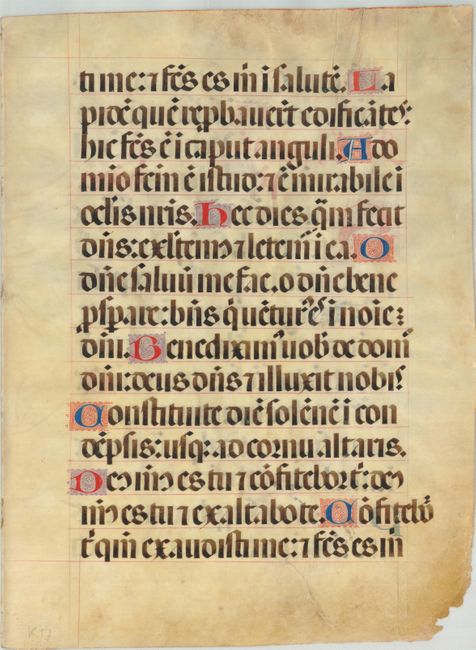 ti me: ⁊ fc̄s es m̄ i salutē. La
pidē quē rep̱bauerūt edificātes:
hic fc̄s ē i caput anguli. A do
mio fc̄m ē istud: ⁊ ē mirabile i
oclis nr̄is. Hec dies q̄m fecit
dn̄s: exl̄temꝰ ⁊ letemꝰ i ea. O
dn̄e saluū me fac. o dn̄e bene
ꝓsꝑare: bn̄s qui uēturꝰ ē i noīe
dn̄i. Benediximꝰ uob̄ de domo
dn̄i: deus dn̄s ⁊ illuxit nobis
Constituite diē solēnē i con
dēpsis: usq̄ ad cornu altaris.
Deꝰ mꝰ es tu ⁊ cōfitebor t̄: deꝰ
mꝰ es tu ⁊ exaltabo te. Cōfitebor
t̄ qm̄ exaudisti me: ⁊ fc̄s es m̄